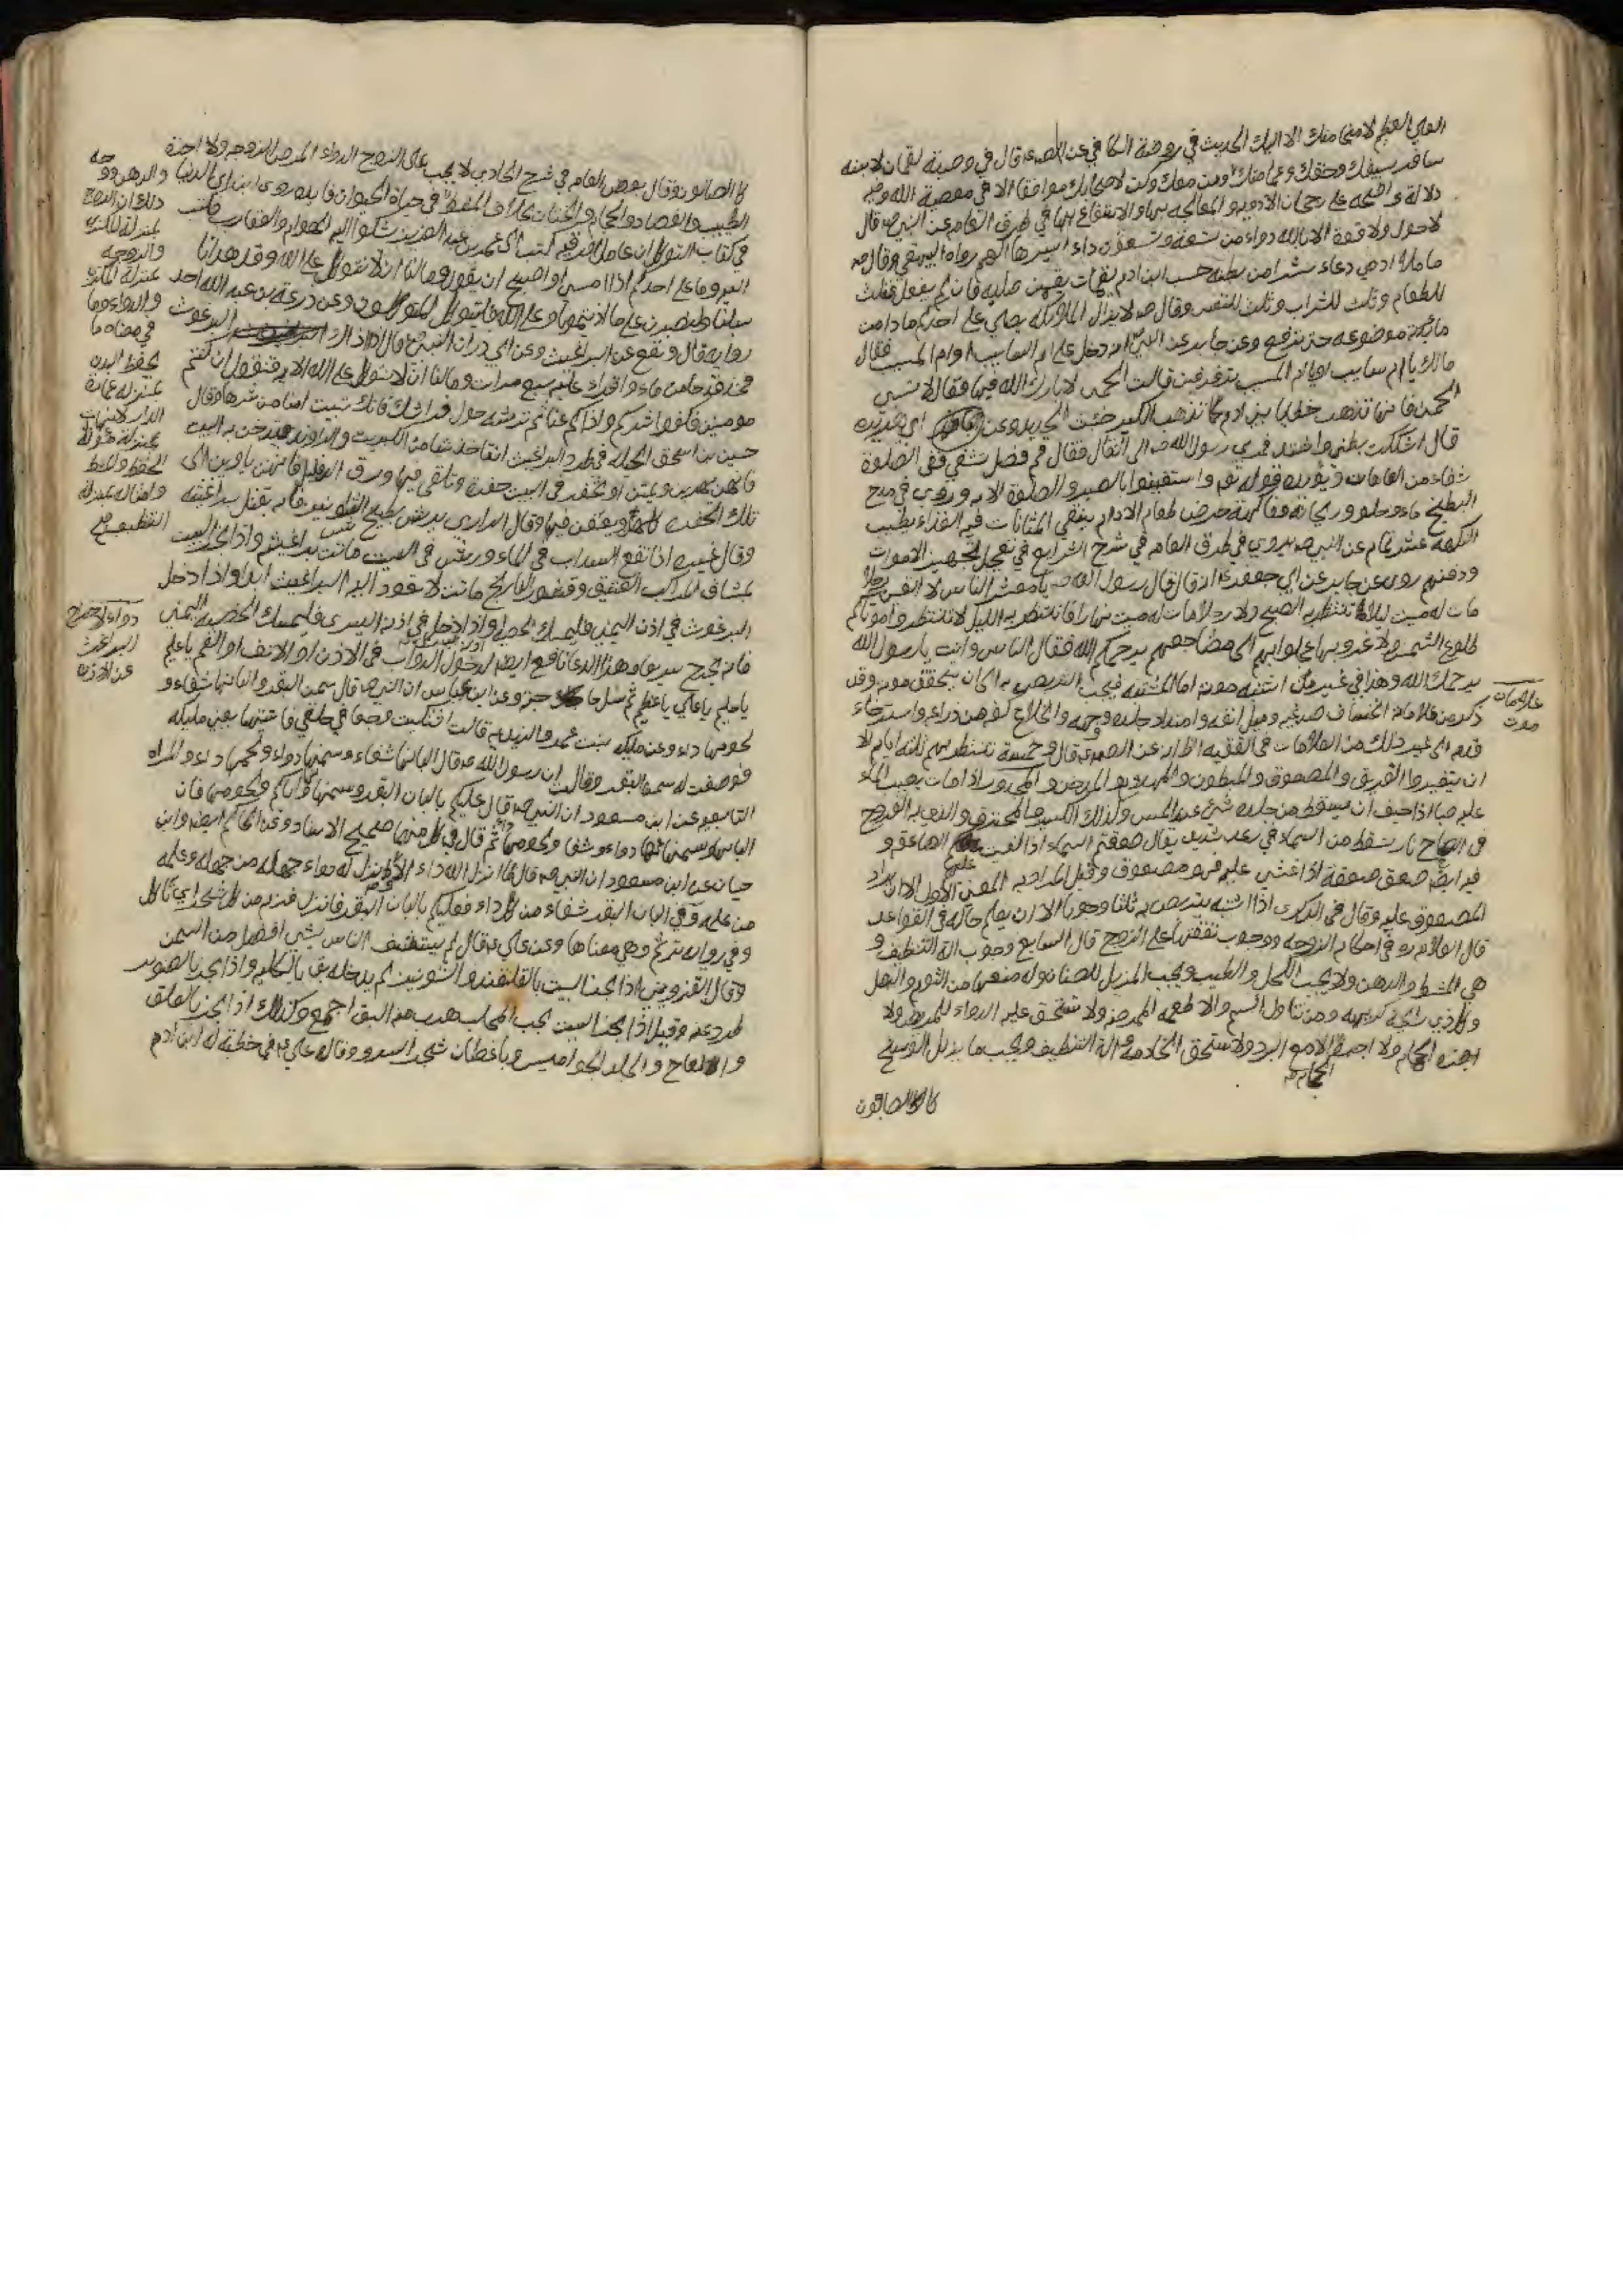 العلي العظيم لا منجا منك الا اليك الحديث في روضة الكافي عن الصم قال في وصية لقمان لابنه
سافر بسيفك وخفك وعمامتك ومن معك وكن لاصحابك موافقا الا في معصية الله وفيه
دلالة واضحة على رجحان الادويه والمعالجه بها والانتفاع بها في طريق العامه عن النبي صم قال
لا حول ولا قوة الا بالله دواء من تسعة وتسعون داء ايسرها الهم رواه البيهقي وقال صم
ما ملاء ادمي وعاء شرا من بطنه حسب ابن ادم لقمات يقمن صلبه فان لم يفعل فثلث
للطعام وثلث للشراب وثلث للنفس وقال صم لا يزال الملائكه يصلي على احدكم ما دامت
مائدته موضوعه حتى ترفع وعن جابر عن النبي انه دخل على ام السايب او ام المسيب فقال
مالك يا ام سايب او يا ام المسيب تزفزفين قالت الحمى لا بارك الله فيها فقال لا تسبي
الحمى فانها تذهب خطايا بني ادم كما تذهب الكير خبث الحديد وعن ابي هريره
قال اشتكت بطني واشتد فمر بي رسول الله صم الى ان قال فقال قم فصل شفي ففي الصلوة
شفاء من العاهات ويؤيده قوله تع واستعينوا بالصبر والصلوة الايه وروي في مدح
البطيخ ماء وحلو وريحانة وفاكهة حرض طعام الادام ينقي المثانات فيه الغذاء يطيب
النكهه عشر تمام عن النبي صم يروي في طريق العامه في شرح الشرايع في تعجيل تجهيز الاموات
ودفنهم روى عن جابر عن ابي جعفر ع انه قال قال رسول الله صم يا معشر الناس لا الفين رجلا
مات له ميت ليلا فانتظر به الصبح ولا رجلا مات له ميت نهارا فانتظر به الليل لا تنتظروا موتاكم
طلوع الشمس ولا غروبها عجلوا بهم الى مضاجعهم يرحمكم الله فقال الناس وانت يا رسول الله
يرحمك الله وهذا في غير من اشتبه موته اما المشتبه فيجب التربص به الى ان يتحقق موته وقد
ذكر من علاماته انخساف صدغيه وميل انفه وامتداد جلده وجهه وانخلاع كفه من ذراعه واسترخاء
قدمه الى غير ذلك من العلامات في الفقيه الطاري عن الصم قال وخمسة تنتظر بهم ثلثه ايام الا
ان يتغيروا الغريق والمصعوق والمبطون والمهدوم والمدخن والمجدور اذا مات يصب الماء
عليه صبا اذا خيف ان يسقط من جلده شيء عند المس وكذلك الكسير والمحترق والذي به القروح
في الصحاح نار تسقط من السماء في رعد شديد يقال صعقتهم السماء اذا القيت عليهم الصاعقة و
فيه ايض صعق صعقة اذا غشي عليه فهو مصعوق وقيل المراد به المعنى الاول الا ان يراد
المصعوق عليه وقال في الذكرى اذا اشتبه يتربص به ثلثا وجوبا الا ان يعلم حاله في القواعد
قال العلامه ره في احكام الزوجه ووجوب نفقتها على الزوج قال السابع وجوب الة التنظيف و
هي المشط والدهن ولا يجب الكحل والطيب ويجب المزيل للصنان وله منعها من الثوم والبصل
وكل ذي رايحة كريهه ومن تناول السم والاطعمه الممرضه ولا تستحق عليه الدواء للمرض ولا
اجرة الحمام ولا اجرة الحجامه الا مع البرد ولا تستحق الخلامه والة التنظيف ويجب ما يزيل الوسخ
كالصابون
علامات
موت
كالصابون وقال بعض العامه في شرح الحاوي لا يجب على الزوج الدواء لمرض الزوجه ولا اجرة
الطبيب والفصاد والحجام والختان بخلاف المفقود في حياة الحيوان فايده روى ابن ابي الدنيا
في كتاب التوكل ان عامل افريقيه كتب الى عمر بن عبد العزيز يشكوا اليه الهوام والعقارب فكتب
اليه وما على احدكم اذا امسى او اصبح ان يقول وما لنا ان لا نتوكل على الله وقد هدانا
سبلنا ولنصبرن على ما اذيتمونا وعلى الله فليتوكل المتوكلون وعن زرعة بن عبد الله احد
رواته قال وينفع عن البراغيث وعن ابي ذر ان النبي صم قال اذا اذاك البرغوث
فخذ قدحا من ماء واقراء عليه سبع مرات وما لنا ان لا نتوكل على الله الايه فتقول ان كنتم
مومنين فكفوا شركم واذاكم عنا ثم ترشه حول فراشك فانك تبيت امنا من شرها وقال
حسين بن اسحق الحيله في طرد البراغيث ان تاخذ شيئا من الكبريت والراوند فتدخن به البيت
فانهن يهربن ويمتن او يحفر في البيت حفرة وتلقي فيها ورق الدفلى فانهن ياوين الى
تلك الحفرة كلها ويقعن فيها وقال الرازي يرش بطبيخ الشونيز فانه يقتل براغيثه
وقال غيره اذا نقع السداب في الماء ورش في البيت ماتت براغيثه واذا بخر البيت
بمشاق المراكب العتيق وقشور النارنج ماتت لا تعود اليه البراغيث ابدا واذا دخل
البرغوث في اذن اليمنى فليمسك الخصيه اليسرى واذا دخل في اذن اليسرى فليمسك الخصيه اليمنى
فانه يخرج سريعا وهذا الدعا نافع ايض لدخول الدواب في الاذن او الانف او الفم يا عليم
يا حليم يا علي يا عظيم وعن ابن عباس ان النبي صم قال سمن البقر والبانها شفاء و
لحومها داء وعن مليكه بنت عمرو الزيديه قالت اشتكيت وجعا في حلقي فاتيتها يعني مليكه
فوصفت له سمن البقر وقالت ان رسول الله صم قال البانها شفاء وسمنها دواء ولحمها داء
التابعيه عن ابن مسعود ان النبي صم قال عليكم بالبان البقر وسمنها واياكم ولحومها فان
البانها وسمنها دواء وشفا ولحومها داء ثم قال في كل منهما صحيح الاسناد وعن الحاكم ايض وابن
حيان عن ابن مسعود ان النبي صم قال ما انزل الله داء الا وانزل له دواء جهله من جهله وعلمه
من علمه وفي البان البقر شفاء من كل داء فعليكم بالبان البقر فانها ترم من كل شجر اي تاكل
وفي روايه ترتم وهي معناها وعن علي ع قال لم يستشف الناس بشيء افضل من السمن
وقال القزويني اذا بخر البيت بالقلقند والشونيز لم يدخله بق بالكليه واذا بخر بالصنوبر
طرد عنه وقيل اذا بخر البيت بحب المحلب هرب منه البق اجمع وكذلك اذا بخر بالعلق
والعاج والجلد الجواميس وباغصان شجر السرو وقال علي ع في خطبة له ابن ادم
والدهن ووجه
ذلك ان الزوج
بمنزلة المكتري
والزوجه
بمنزلة المكري
والدواء وما
في معناه ما
يحفظ البدن
بمنزله عمارة
الدار
بمنزلة
الحفظ والمشط
وامثاله بمنزلة
التنظيف
دواء لاخراج
البراغيث
عن الاذن